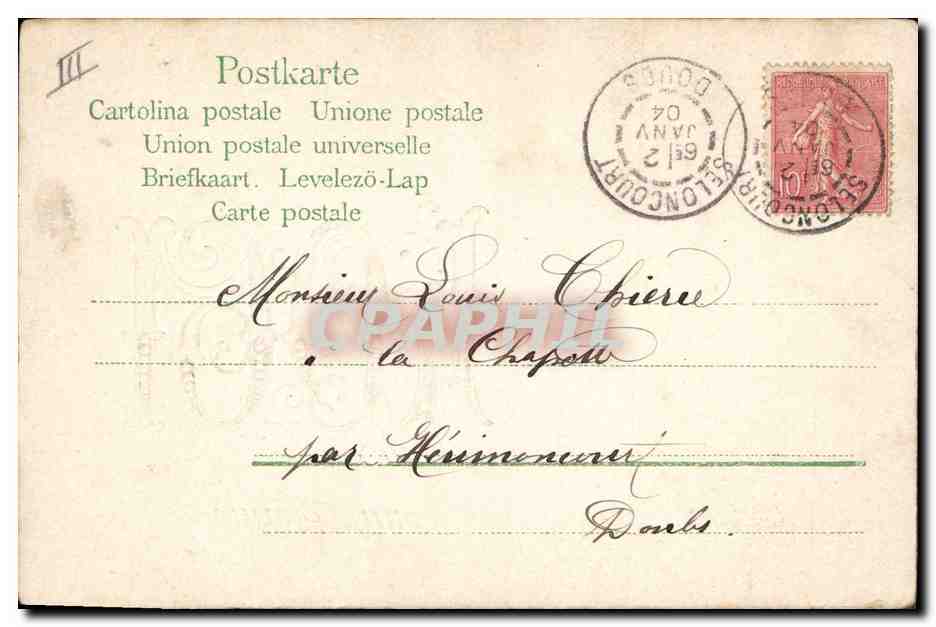 III
Postkarte
Cartolina postale Unione postale
Union postale universelle
Briefkaart. Levelezö-Lap
Carte postale
SELONCOURT
6E/2
JANV
04
DOUBS
10
SELONCOURT
6E/2
JANV
04
Monsieur Louis Thierre
CPAPHIL
à la Chapotte
par Hérimoncourt
Doubs.